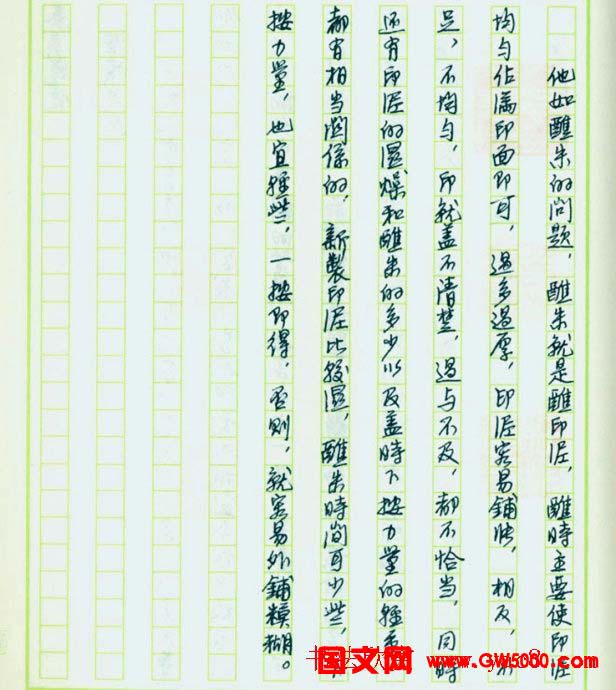 他如醮朱的问题,醮朱就是醮印泥,醮時主要使印泥
均匀佔满印面即可,過多過厚,印泥容易鋪胀,相反,
足,不均匀,印就盖不清楚,過与不及,都不恰当,同時
还有印泥的濕燥和醮朱的多少以及盖時下按力量的輕重
都有相当関係的,新製印泥比較濕,醮朱時间可少些,
按力量,也宜輕些,一按即得,否則,就容易外鋪糢糊。
国文网 www.GW5000.com